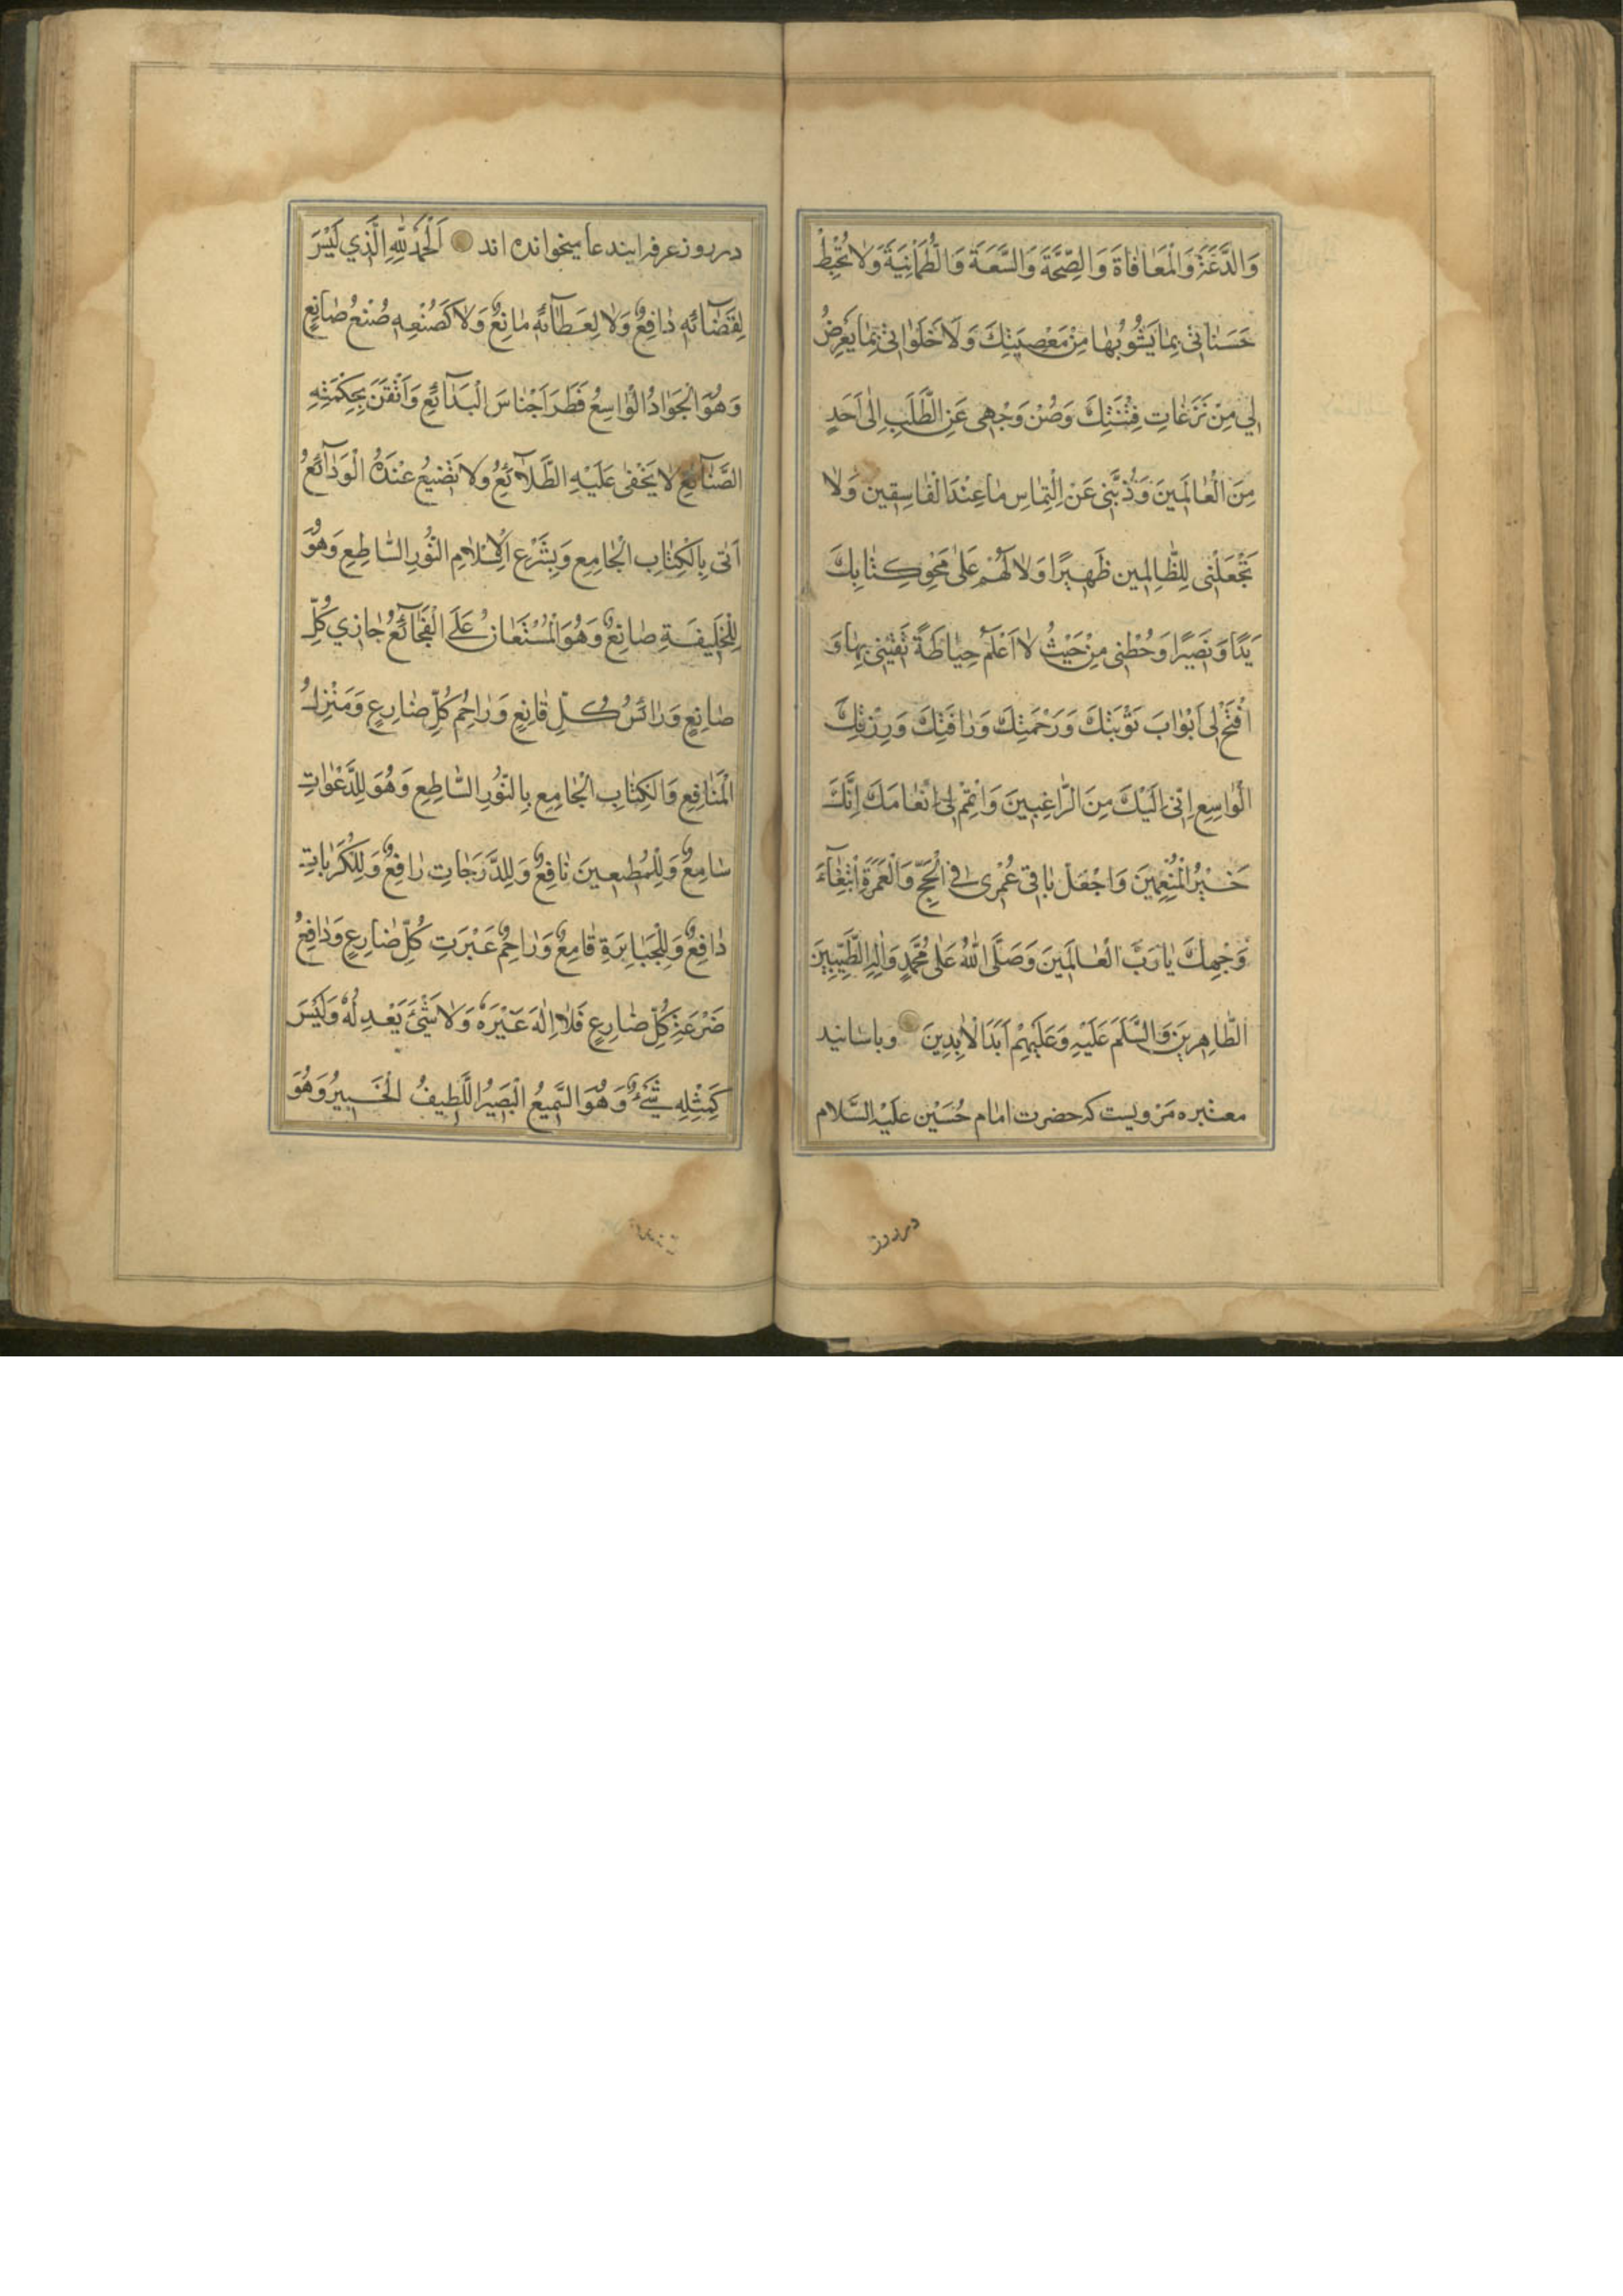 وَالدَّعَةَ وَالْمُعَافَاةَ وَالصِّحَّةَ وَالسَّعَةَ وَالطُّمَانِيَةَ وَلَا تُحْبِطْ
حَسَنَاتِي بِمَا يَشُوبُهَا مِنْ مَعْصِيَتِكَ وَلَا خَلَوَاتِي بِمَا يَعْرِضُ
لِي مِنْ نَزَعَاتِ فِتْنَتِكَ وَصُنْ وَجْهِي عَنِ الطَّلَبِ اِلٰى اَحَدٍ
مِنَ الْعَالَمِينَ وَذُبَّنِي عَنْ اِلْتِمَاسِ مَا عِنْدَ الْفَاسِقِينَ وَلَا
تَجْعَلْنِي لِلظَّالِمِينَ ظَهِيرًا وَلَا لَهُمْ عَلٰى مَحْوِ كِتَابِكَ
يَدًا وَنَصِيرًا وَحُطْنِي مِنْ حَيْثُ لَا اَعْلَمُ حِيَاطَةً تَقِيَنِي بِهَا وَ
افْتَحْ لِي اَبْوَابَ تَوْبَتِكَ وَرَحْمَتِكَ وَرَافَتِكَ وَرِزْقِكَ
الْوَاسِعِ اِنِّي اِلَيْكَ مِنَ الرَّاغِبِينَ وَاَتْمِمْ لِي اِنْعَامَكَ اِنَّكَ
خَيْرُ الْمُنْعِمِينَ وَاجْعَلْ بَاقِي عُمْرِي فِي الْحَجِّ وَالْعُمْرَةِ ابْتِغَآءَ
وَجْهِكَ يَا رَبَّ الْعَالَمِينَ وَصَلَّى اللّٰهُ عَلٰى مُحَمَّدٍ وَاٰلِهِ الطَّيِّبِينَ
الطَّاهِرِينَ وَالسَّلَمَ عَلَيْهِ وَعَلَيْهِمْ اَبَدَ الْاٰبِدِينَ وباسانيد
معتبره مَرْويست كه حضرت امام حُسَيْن عَلَيْهِ السَّلام
در روز
در روز عرفه اين دعا ميخوانده اند اَلْحَمْدُ لِلّٰهِ الَّذِي لَيْسَ
لِقَضَآئِهِ دَافِعٌ وَلَا لِعَطَآئِهِ مَانِعٌ وَلَا كَصُنْعِهِ صُنْعُ صَانِعٍ
وَهُوَ الْجَوَادُ الْوَاسِعُ فَطَرَ اَجْنَاسَ الْبَدَآئِعِ وَاَتْقَنَ بِحِكْمَتِهِ
الصَّنَآئِعَ لَا يَخْفٰى عَلَيْهِ الطَّلَآئِعُ وَلَا تَضِيعُ عِنْدَهُ الْوَدَآئِعُ
اَتٰى بِالْكِتَابِ الْجَامِعِ وَبِشَرْعِ الْاِسْلَامِ النُّورِ السَّاطِعِ وَهُوَ
لِلْخَلِيقَةِ صَانِعٌ وَهُوَ الْمُسْتَعَانُ عَلَى الْفَجَآئِعِ جَازِي كُلِّ
صَانِعٍ وَرَائِشُ كُلِّ قَانِعٍ وَرَاحِمُ كُلِّ ضَارِعٍ وَمُنْزِلُ
الْمَنَافِعِ وَالْكِتَابِ الْجَامِعِ بِالنُّورِ السَّاطِعِ وَهُوَ لِلدَّعَوَاتِ
سَامِعٌ وَلِلْمُطِيعِينَ نَافِعٌ وَلِلدَّرَجَاتِ رَافِعٌ وَلِلْكُرُبَاتِ
دَافِعٌ وَلِلْجَبَابِرَةِ قَامِعٌ وَرَاحِمُ عَبْرَتِ كُلِّ ضَارِعٍ وَدَافِعُ
ضَرْعَةِ كُلِّ ضَارِعٍ فَلَا اِلٰهَ غَيْرُهُ وَلَا شَيْءَ يَعْدِلُهُ وَلَيْسَ
كَمِثْلِهِ شَيْءٌ وَهُوَ السَّمِيعُ الْبَصِيرُ اللَّطِيفُ الْخَبِيرُ وَهُوَ